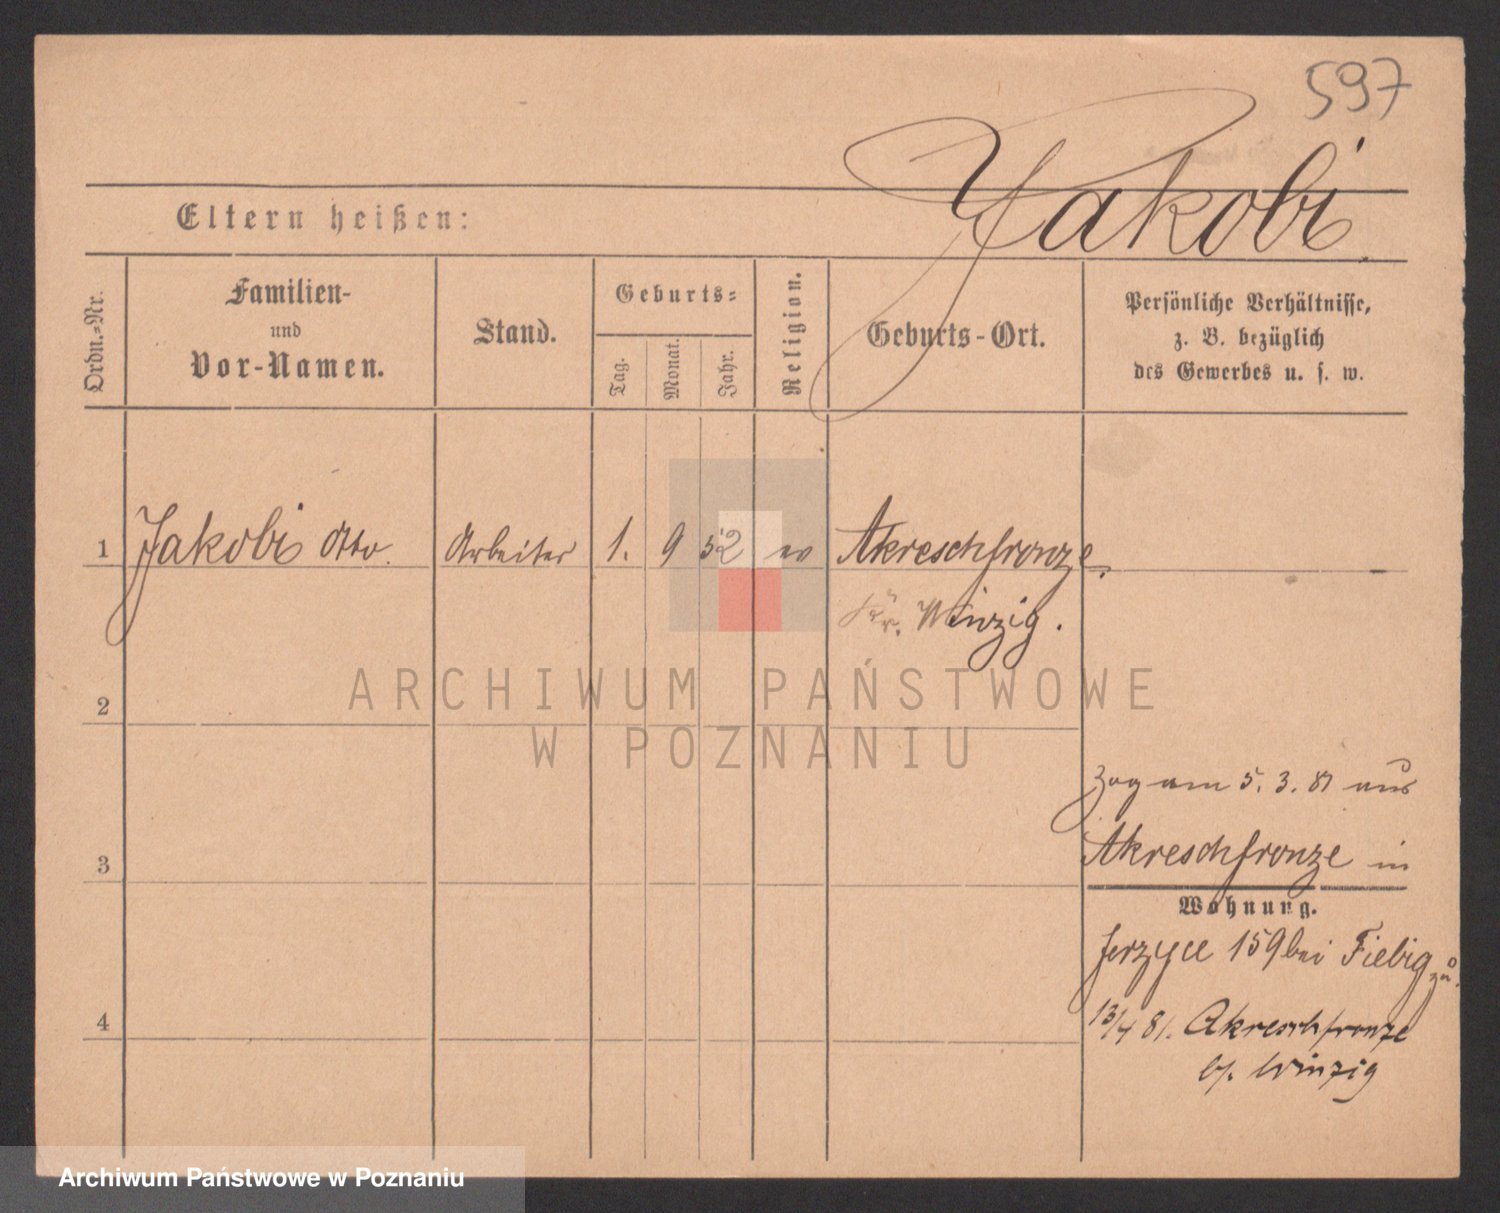 597
Jakobi.
Eltern heißen:
Ordn.=Nr.
Familien-
und
Vor-Namen.
Stand.
Geburts=
Tag.
Monat.
Jahr.
Religion.
Geburts-Ort.
Persönliche Verhältnisse,
z. B. bezüglich
des Gewerbes u. s. w.
1 Jakobi Otto. Arbeiter 1. 9 52 ev Akreschfronze.
Kr. Winzig.
ARCHIWUM PAŃSTWOWE
2
W POZNANIU
Zog am 5. 3. 81 aus
3 Akreschfronze in
Wohnung.
Jerzyce 159 bei Fiebig zu.
4 13/4 81. Akreschfronze
b/. Winzig
Archiwum Państwowe w Poznaniu